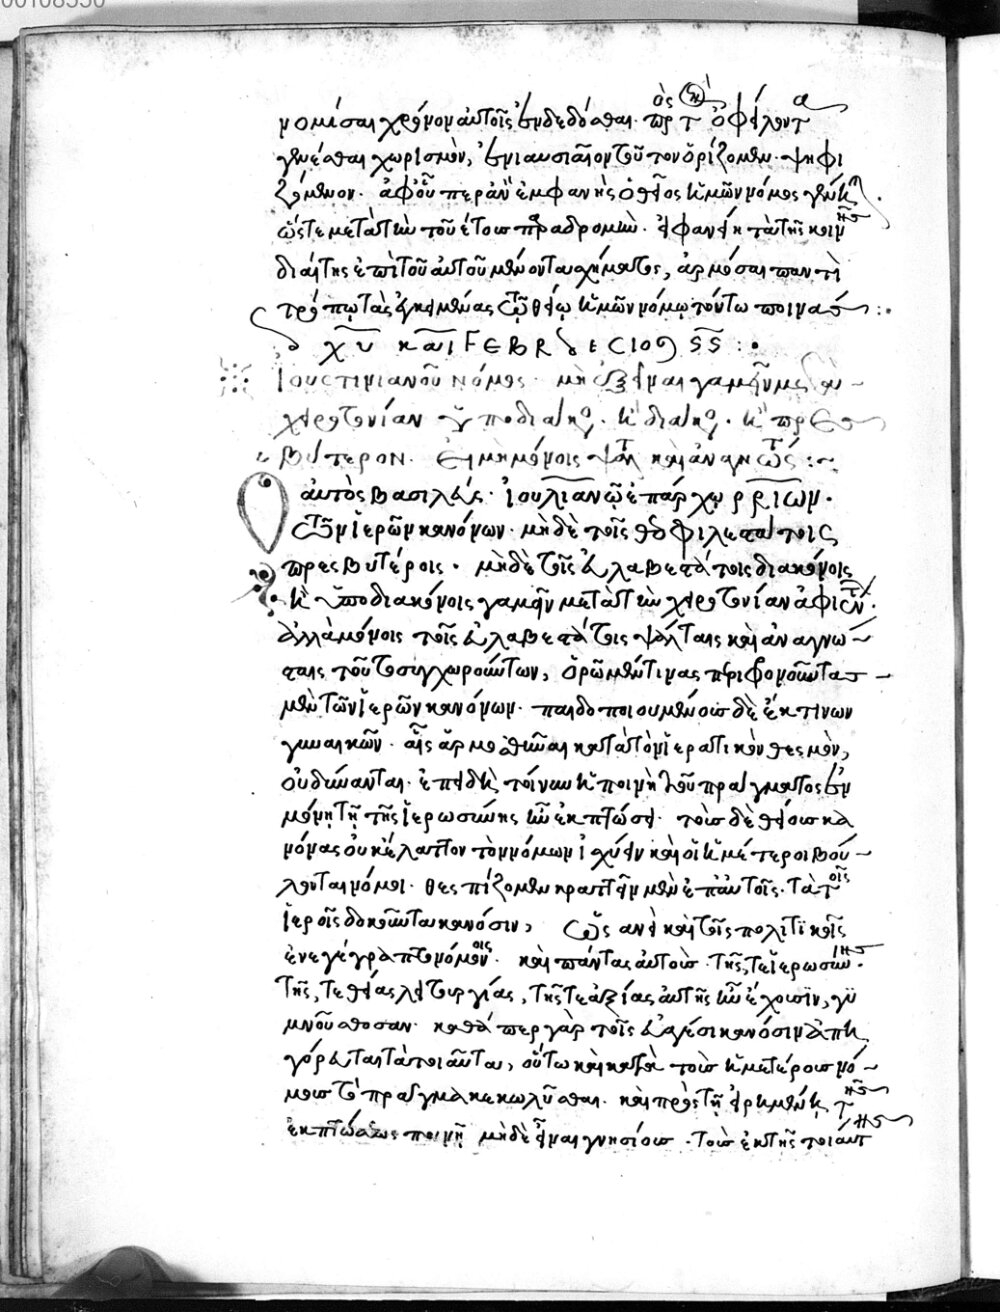 νομίσαι χρόνον αὐτοῖς ἐνδεδόσθαι. πρὸς τ ὀφείλοντα
γενέσθαι χωρισμὸν, ἐνιαυσιαῖον τοῦτον ὁρίζομεν. ψηφι
ζόμενον. ἀφ' οὗ περ ἂν ἐμφανὴς ὁ θεῖος ἡμῶν νόμος γένη
ὥστε μετὰ τὴν τοῦ ἔτους παραδρομὴν. εἰ φανείη τὰ τῆς κοινῆς
διαίτης ἐπὶ τοῦ αὐτοῦ μένοντα σχήματος, ἁρμόσαι παντὶ
τρόπῳ τὰς ἐγκειμένας τῷ θείῳ ἡμῶν νόμῳ τούτῳ ποινάς :
Ἰουστινιανοῦ νόμος. μὴ ἐξεῖναι γαμεῖν μετὰ
χειροτονίαν ὑποδιακο. καὶ διακο. καὶ πρε
βύτερον. εἰ μὴ μόνοις ψάλτ καὶ ἀναγνώστ :
αὐτὸς βασιλεύς. Ἰουλιανῷ ἐπάρχῳ πραιτωριων.
τῶν ἱερῶν κανόνων. μὴ δὲ τοῖς θεοφιλεστάτοις
πρεσβυτέροις. μὴ δὲ τοῖς εὐλαβεστάτοις διακόνοις
καὶ ὑποδιακόνοις γαμεῖν μετὰ τὴν χειροτονίαν ἀφιέντων.
ἀλλὰ μόνοις τοῖς εὐλαβεστάτοις ψάλταις καὶ ἀναγνώ
σταις τοῦτο συγχωρούντων, ὁρῶμέν τινας περιφρονοῦντας
μὲν τῶν ἱερῶν κανόνων. παιδοποιουμένους δὲ ἔκ τινων
γυναικῶν. αἷς ἁρμοσθῆναι κατὰ τὸν ἱερατικὸν θεσμὸν,
οὐ δύνανται. ἐπειδὴ τοίνυν ἡ ποινὴ τοῦ πράγματος ἐν
μόνῃ τῇ τῆς ἱερωσύνης ἦν ἐκπτώσει. τοὺς δὲ θείους κα
νόνας οὐκ ἔλαττον τῶν νόμων ἰσχύειν καὶ οἱ ἡμέτεροι βού
λονται νόμοι. θεσπίζομεν κρατεῖν μὲν ἐπ' αὐτοῖς. τὰ τοῖς
ἱεροῖς δοκοῦντα κανόσιν, ὡς ἂν εἰ καὶ τοῖς πολιτικοῖς
ἐνεγέγραπτο νόμοις. καὶ πάντας αὐτοὺς. τῆς τε ἱερωσύνης.
τῆς τε θείας λειτουργίας, τῆς τε ἀξίας αὐτῆς ἣν ἔχουσιν, γυ
μνοῦσθωσαν. καθάπερ γὰρ τοῖς εὐαγέσι κανόσιν ἀπη
γόρευται τὰ τοιαῦτα, οὕτω καὶ κατὰ τοὺς ἡμετέρους νό
μους τὸ πρᾶγμα κεκωλῦσθαι. καὶ πρὸς τῇ εἰρημένῃ τῆς
ἐκπτώσεως ποινῇ μὴ δὲ εἶναι γνησίους. τοὺς ἐκ τῆς τοιαύτης